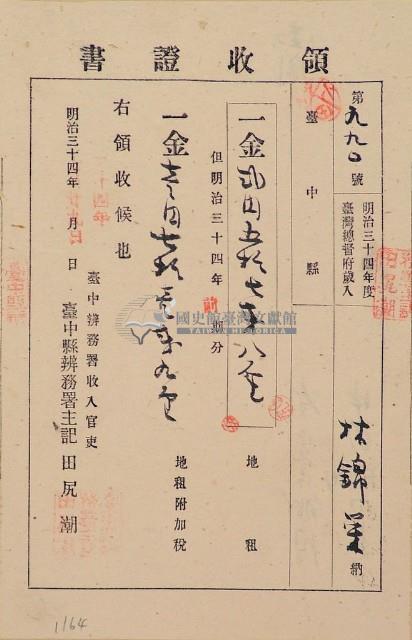 領收證書
第九九〇號
明治三十四年度
臺灣總督府歲入
臺中縣
林錦 納
一金貳圓五拾七錢八厘
地租
但明治三十四年 期分
一金壱圓七拾 錢九厘
地租附加稅
右領收候也
臺中辨務署收入官吏
明治三十四年 月 日
臺中縣辨務署主記 田尻潮
國史館臺灣文獻館
TAIWAN HISTORICA
1164